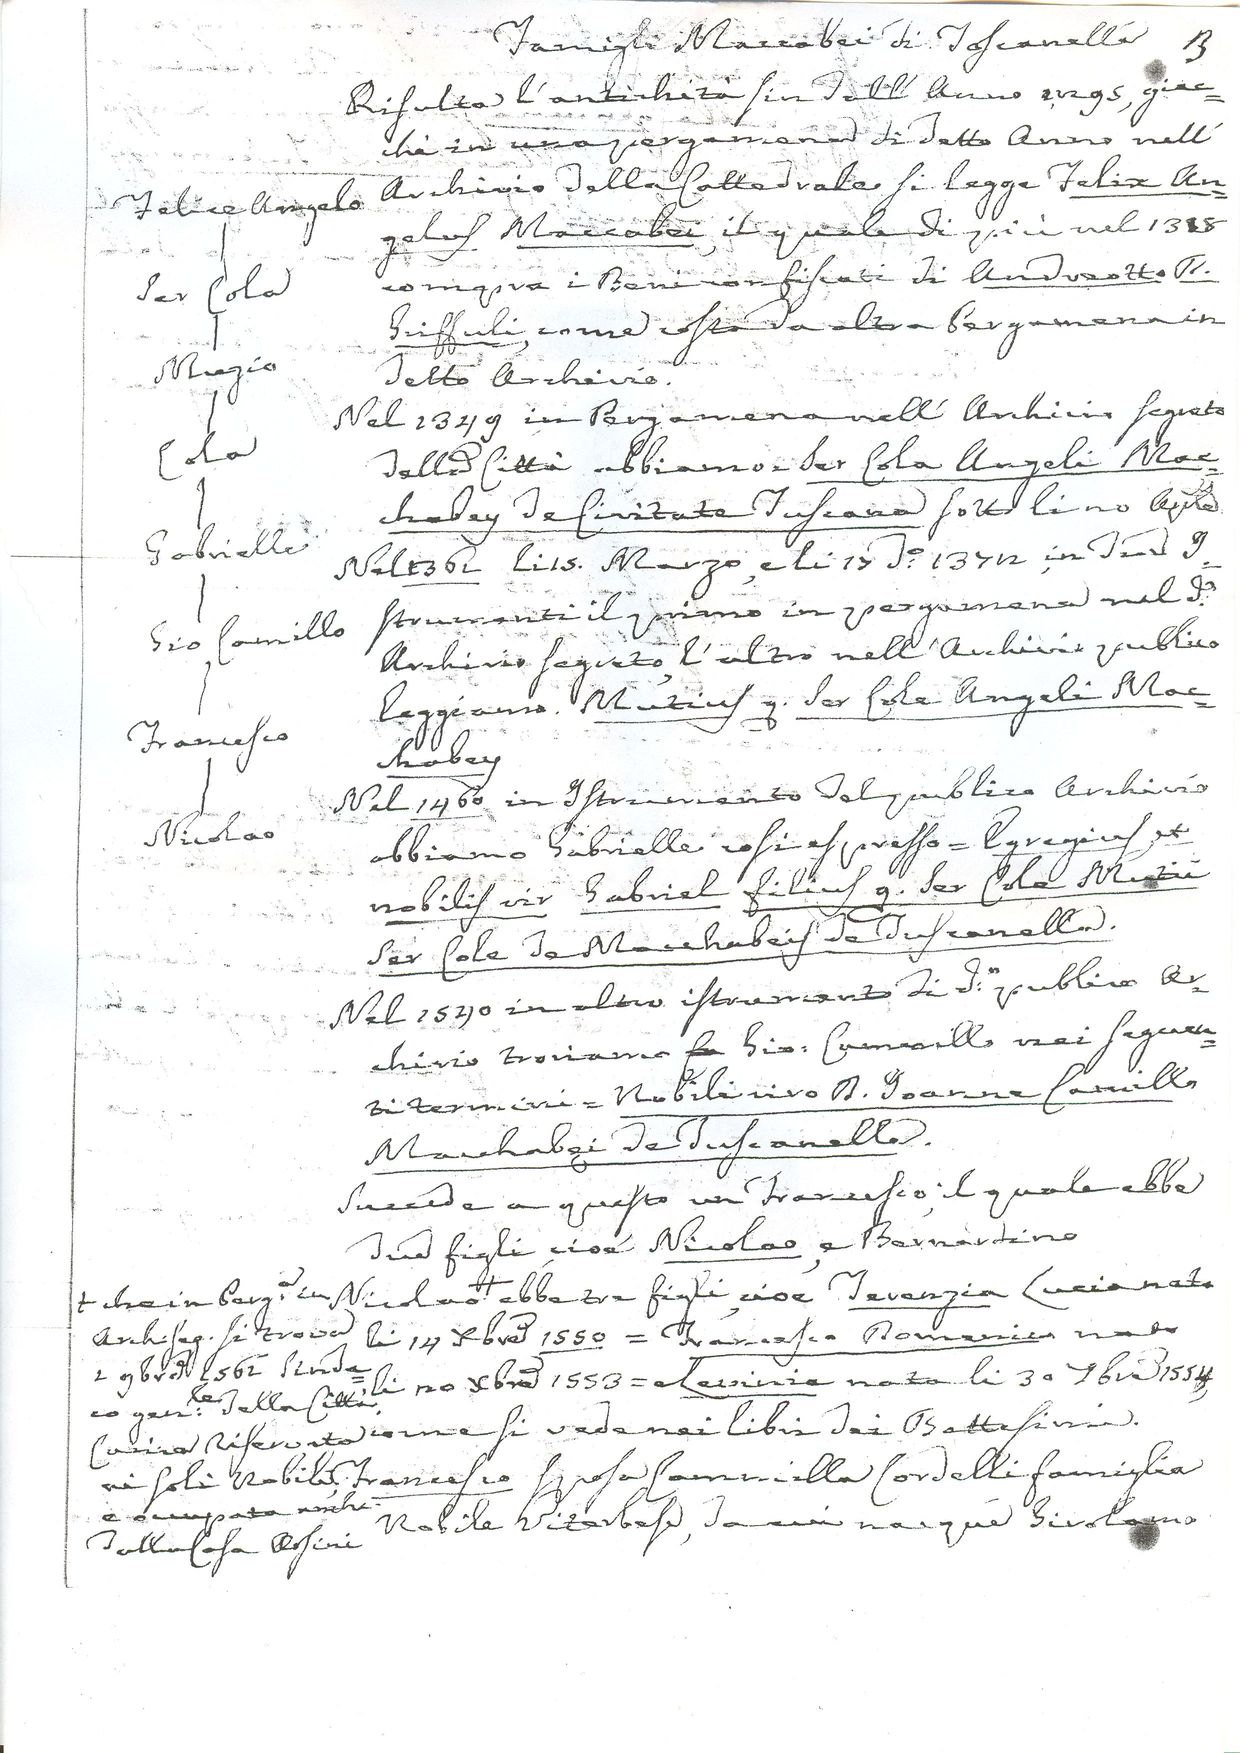 Famiglia Maccabei di Toscanella
B
Risulta l'antichità sin dall'Anno 1295, giac=
chè in una pergamena di detto Anno nell'
Archivio della Cattedrale si legge Felix An=
gelus Maccabei, il quale di più nel 1318
compra i Beni confiscati di Andreotto
come costa da altra Pergamena in
detto Archivio.
Nel 1349 in Pergamena nell'Archivio segreto
della Città abbiamo = Ser Cola Angeli Mac=
chabey de Civitate Tuscana sotto li 20 Aprile
Nel 1361 li 15. Marzo, e li 17 d.º 1372, in due I=
strumenti il primo in pergamena nel d.º
Archivio segreto, l'altro nell'Archivio publico
leggiamo. Mutius q. Ser Cole Angeli Mac=
chabey
Nel 1460 in Istrumento del publico Archivio
abbiamo Gabrielle così espresso = Egregius et
nobilis vir Gabriel filius q. Ser Cole Mutii
Ser Cole de Macchabeis de Tuscanella.
Nel 1540 in altro istrumento di d.º publico Ar=
chivio troviamo Gio: Cammillo nei seguen=
ti termini = Nobili viro D. Joanne Camillo
Macchabei de Tuscanella.
Succede a questo un Francesco, il quale ebbe
due figli, cioè Nicolao, e Bernardino
Nicolao + ebbe tre figli, cioè Terenzia Lucia nata
li 14 Xbre 1550 = Francesco Domenico nato
li 20 Xbre 1553 = e Levinia nata li 30 9bre 1554,
come si vede nei libri dei Battesimi.
Francesco sposa Cammilla Cordelli famiglia
Nobile Viterbese, da cui nacque Girolamo
Felice Angelo
Ser Cola
Muzio
Cola
Gabrielle
Gio Camillo
Francesco
Nicolao
+ che in Perg.ª in
Arch. seg. si trova
2 9bre 1562 Sinda=
co gen.le della Città,
Carica riservata
ai soli Nobili,
e occupata anche
dalla Casa